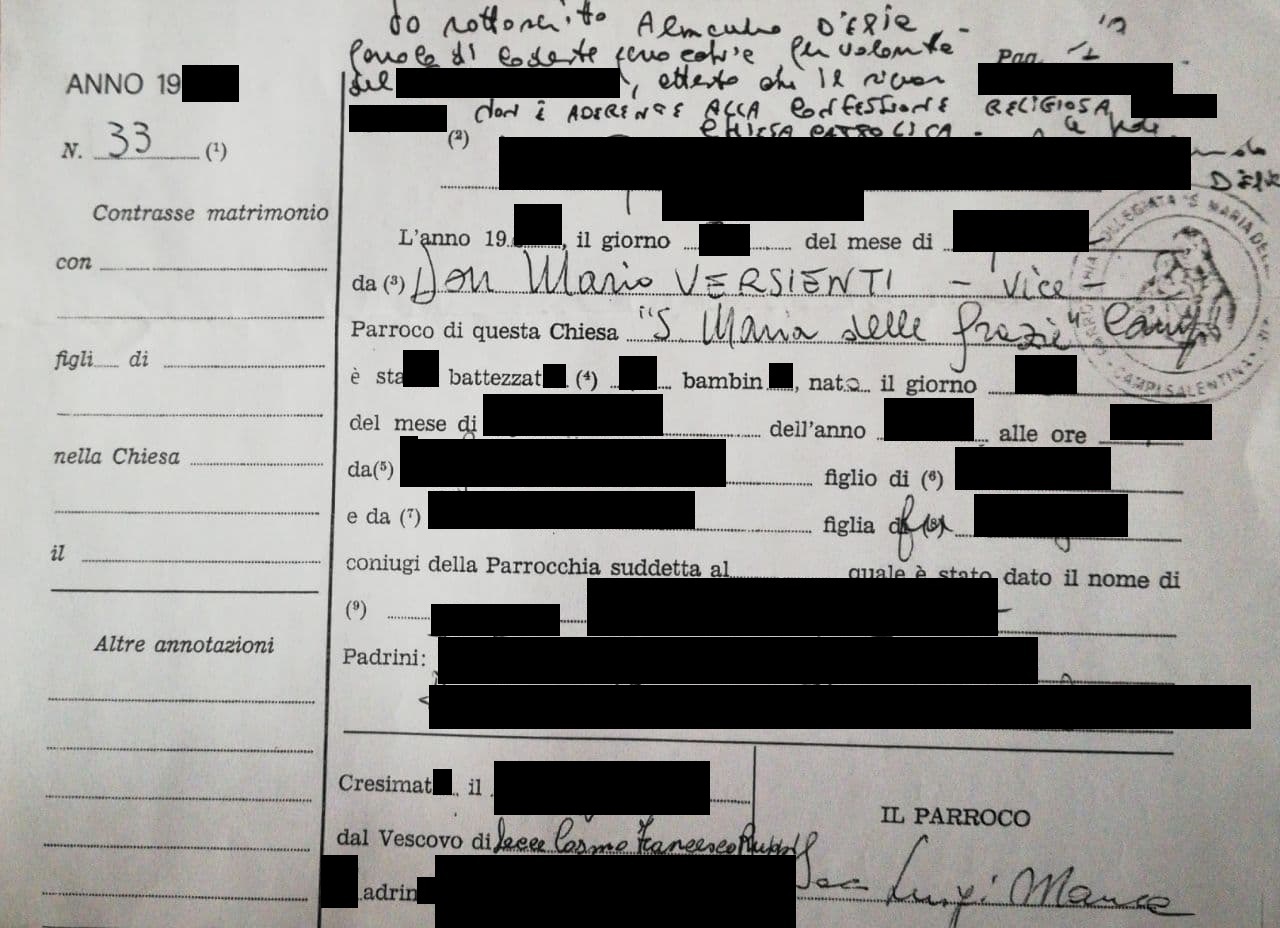 Io sottoscritto
di codeste per volontà Pag.
del , attesto che il
non è ADERENTE ALLA CONFESSIONE RELIGIOSA
CHIESA CATTOLICA -
ANNO 19
N. 33 (1)
(2)
Contrasse matrimonio
con
figli di
nella Chiesa
il
Altre annotazioni
L'anno 19 , il giorno del mese di
da (3) Don Mario VERSIENTI - Vice -
Parroco di questa Chiesa "S. Maria delle Grazie"
è sta battezzat (4) bambin , nato il giorno
del mese di dell'anno alle ore
da (5) figlio di (6)
e da (7) figlia di (8)
coniugi della Parrocchia suddetta al quale è stato dato il nome di
(9)
Padrini:
Cresimat , il
dal Vescovo di Lecce Cosmo Francesco Ruppi
adrin
IL PARROCO
Sac. Luigi Manca
COLLEGIATA "S. MARIA DELLE
CAMPI SALENTINA